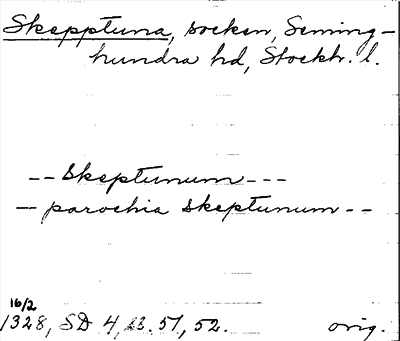 Skepptuna, socken, Seming-
hundra hd, Stockh. l.
-- Skeptunum ---
- parochia Skeptunum --
16/2
1328, SD 4, s. 51, 52. orig.